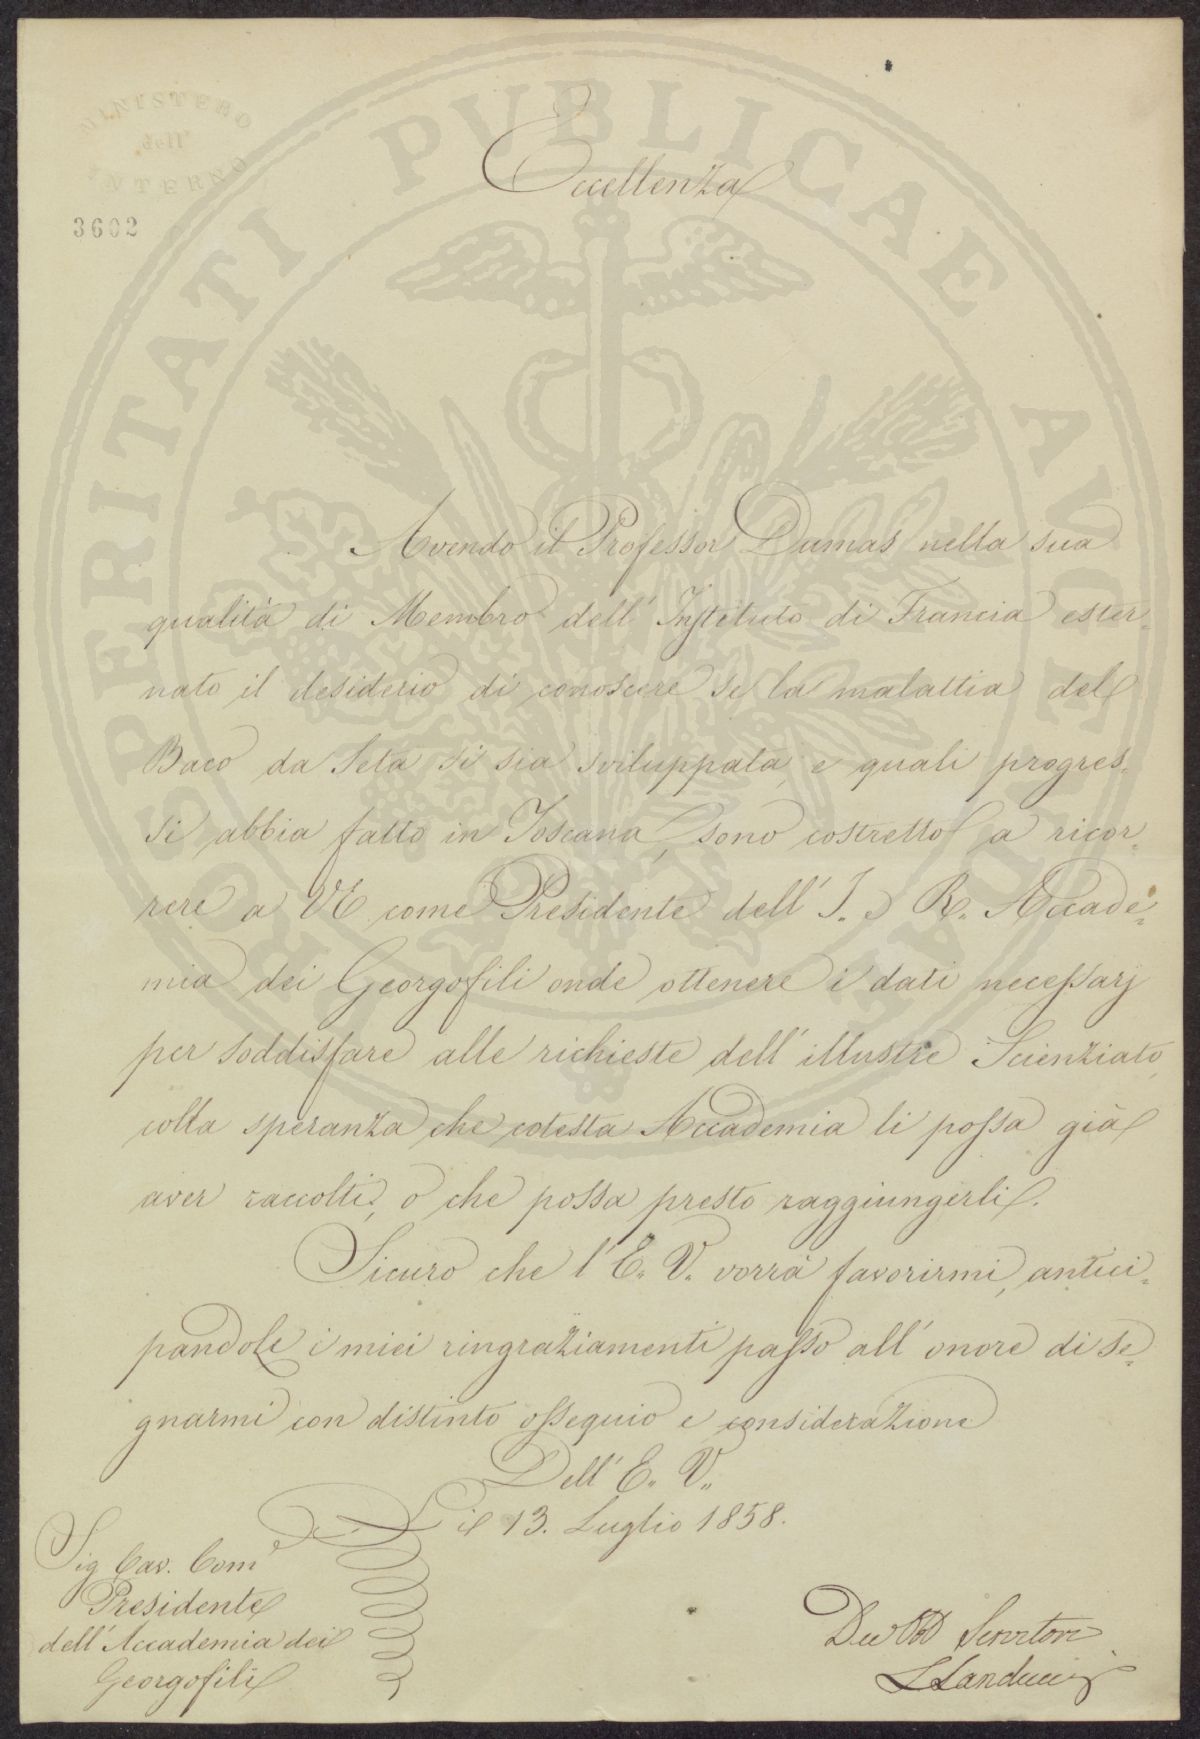 MINISTERO
dell'
INTERNO
3602
PROSPERITATI PUBLICAE AUGENDAE
Eccellenza
Avendo il Professor Dumas nella sua
qualità di Membro dell' Instituto di Francia ester-
nato il desiderio di conoscere se la malattia del
Baco da Seta si sia sviluppata, e quali progres-
si abbia fatto in Toscana, sono costretto a ricor-
rere a VE come Presidente dell' I. e R. Accade-
mia dei Georgofili onde ottenere i dati necessarj
per soddisfare alle richieste dell' illustre Scienziato,
colla speranza che cotesta Accademia li possa già
aver raccolti, o che possa presto raggiungerli.
Sicuro che l' E. V. vorrà favorirmi, antici-
pandole i miei ringraziamenti passo all' onore di se-
gnarmi con distinto ossequio e considerazione
Dell' E. V.
il 13. Luglio 1858.
Sig Cav. Com.e
Presidente
dell' Accademia dei
Georgofili
Servitore
L Landucci